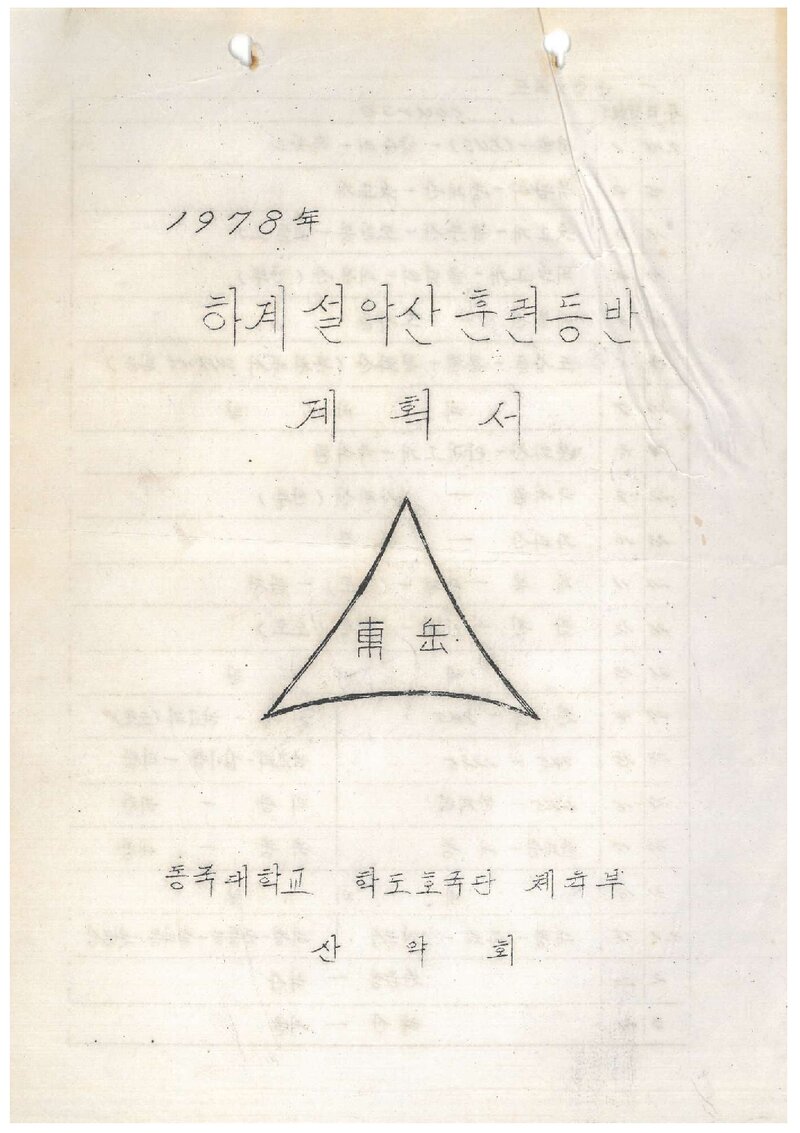 1978年
하계 설악산 훈련등반
계획서
東岳
동국대학교 학도호국단 체육부
산악회